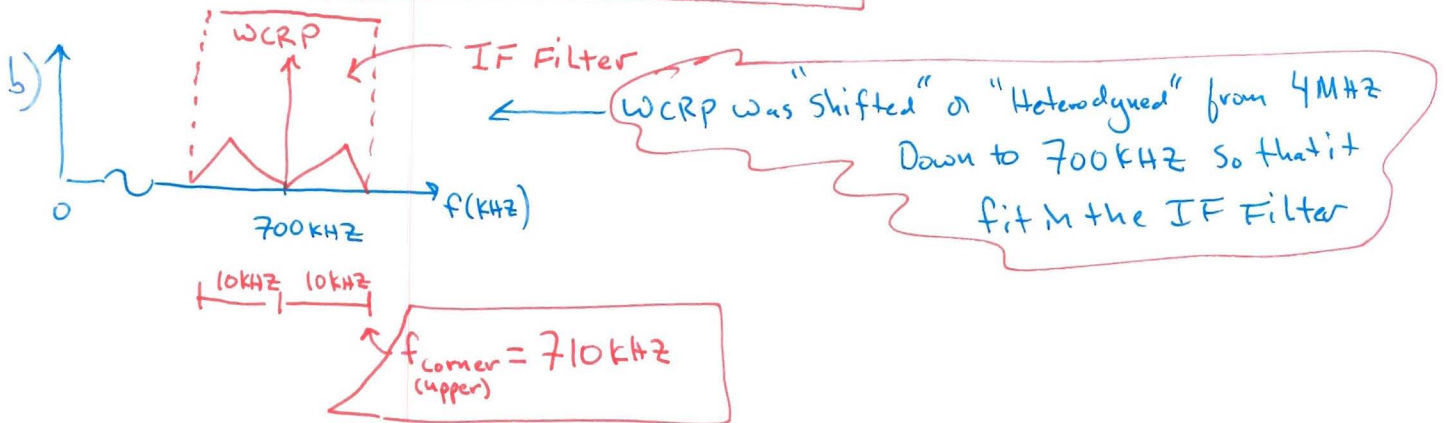 b)
WCRP
IF Filter
WCRP was "Shifted" or "Heterodyned" from 4MHZ
Down to 700KHZ So that it
fit in the IF Filter
0
700KHZ
f(KHZ)
10KHZ 10KHZ
fcorner = 710KHZ
(upper)